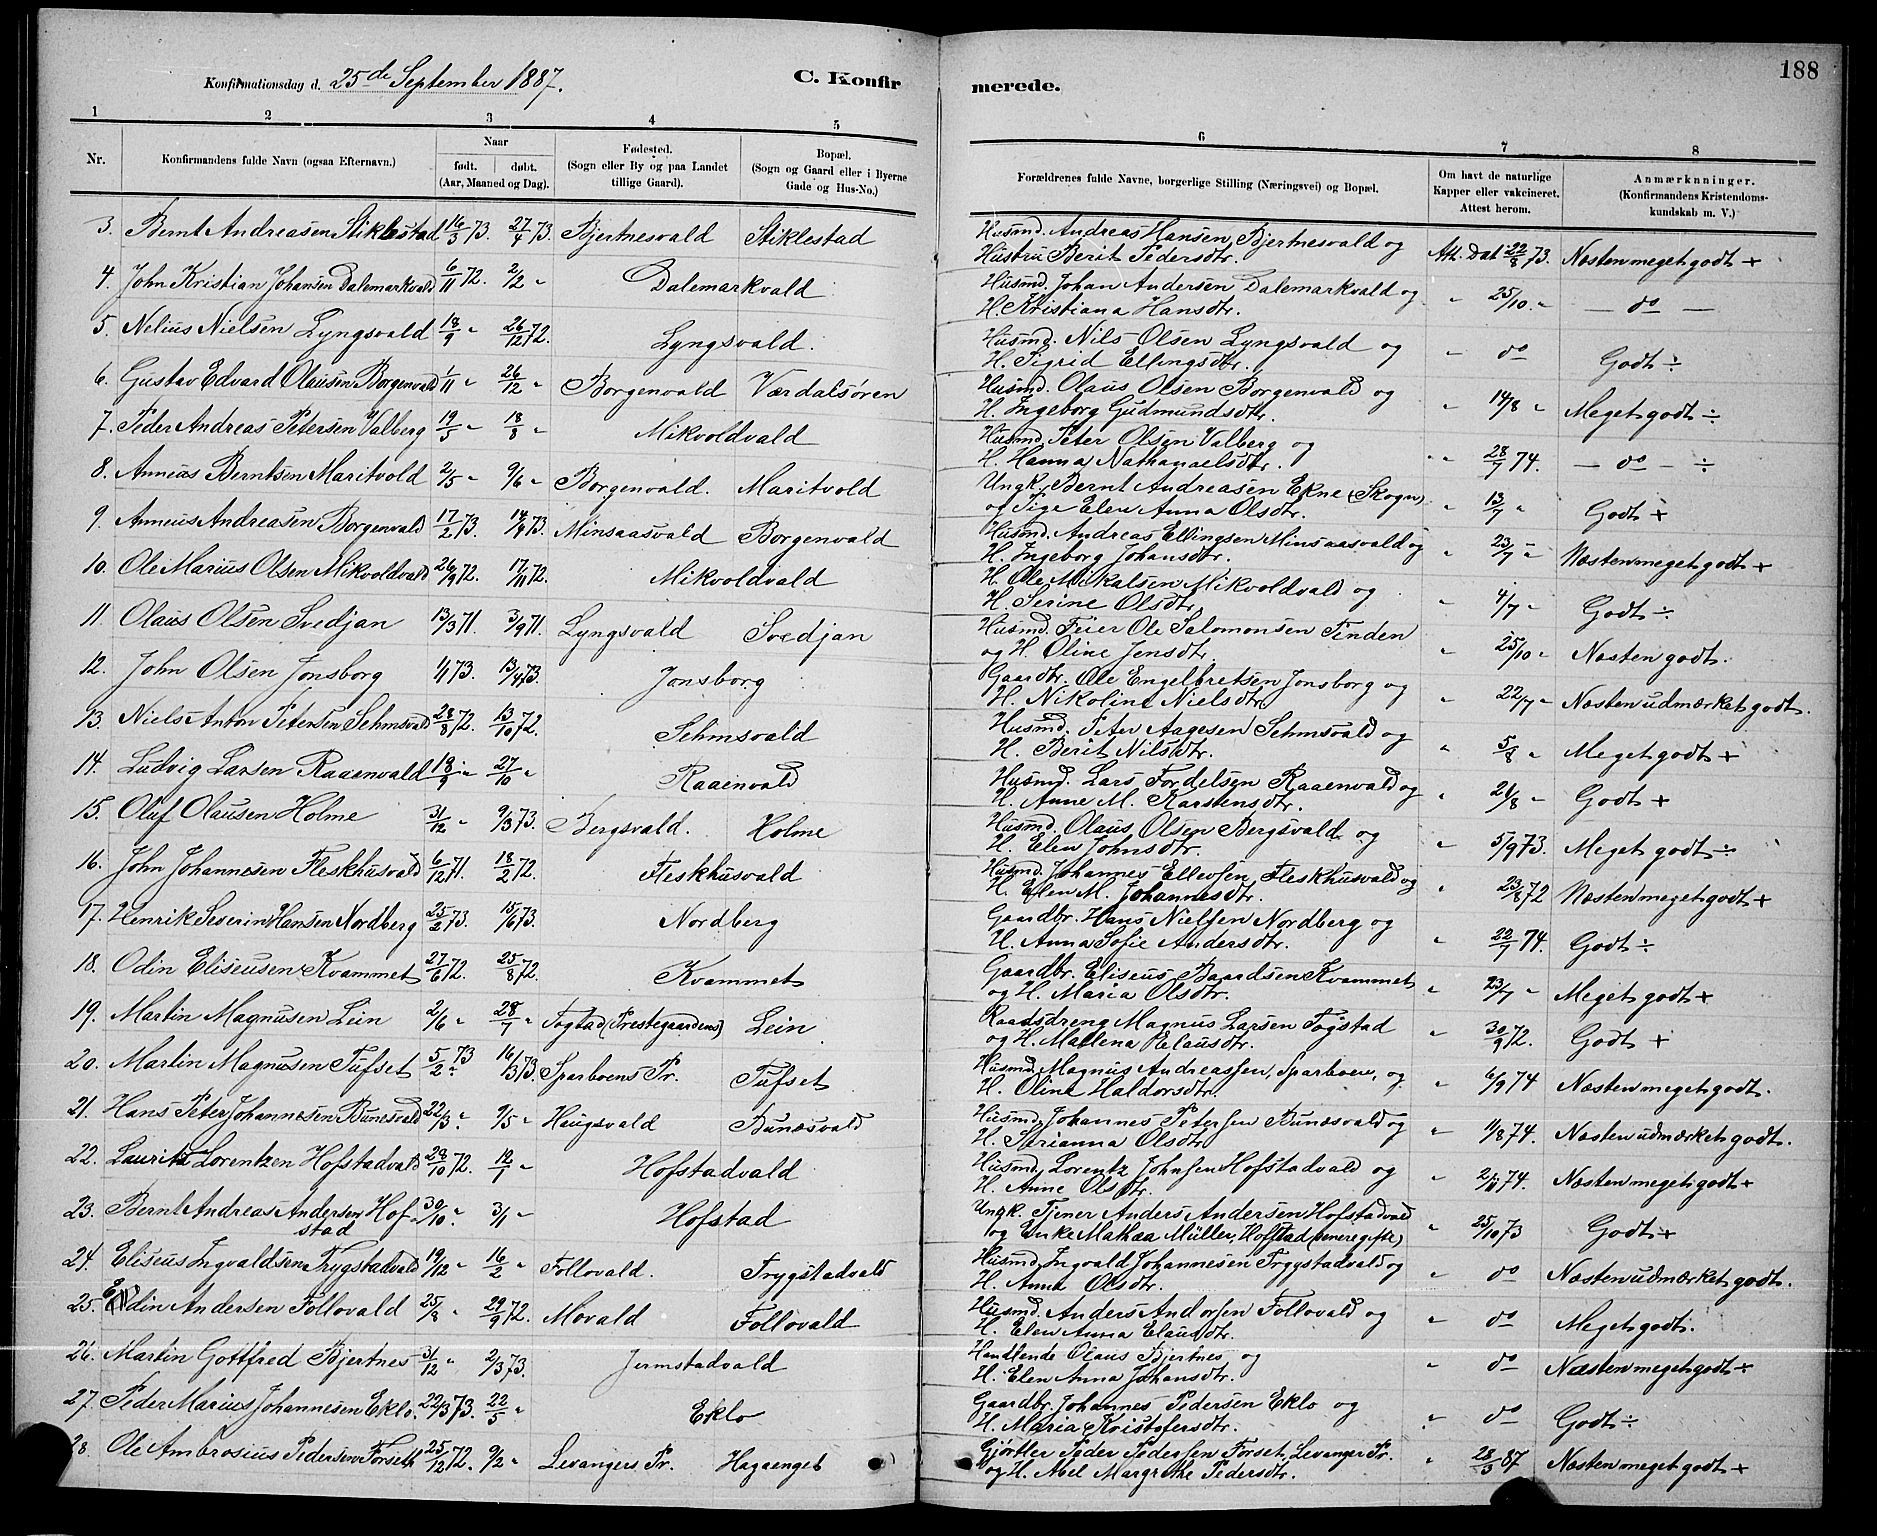 188
Konfirmationsdag d. 25de September 1887.
C. Konfirmerede.
1 2 3 4 5 6 7 8
Nr.
Konfirmandens fulde Navn (ogsaa Efternavn.)
Naar
født. døbt.
(Aar, Maaned og Dag).
Fødested.
(Sogn eller By og paa Landet
tillige Gaard).
Bopæl.
(Sogn og Gaard eller i Byerne
Gade og Hus-No.)
Forældrenes fulde Navne, borgerlige Stilling (Næringsvei) og Bopæl.
Om havt de naturlige
Kapper eller vakcineret.
Attest herom.
Anmærknninger.
(Konfirmandens Kristendoms-
kundskab m. V.)
3. Bernt Andreasen Stiklestad 16/3 73. 27/4 73. Bjertnesvald Stiklestad Husmd. Andreas Hansen Bjertnesvald og
Hustru Berit Pedersdtr. Att. Dat 22/8 73. Næsten meget godt +
4. John Kristian Johansen Dalemarkvald 6/11 72. 2/2 " Dalemarkvald Husmd. Johan Andersen Dalemarkvald og
H. Kristiana Hansdtr. " 25/10. " — do —
5. Nelius Nielsen Lyngsvald 18/9 " 26/12 72. Lyngsvald. Husmd. Nils Olsen Lyngsvald og
H. Sigrid Ellingsdtr. " do Godt ÷
6. Gustav Edvard Olausen Borgenvald 1/11 " 26/12 " Borgenvald Værdalsøren Husmd. Olaus Olsen Borgenvald og
H. Ingeborg Gudmundsdtr. " 14/8 " Meget godt ÷
7. Peder Andreas Petersen Valberg 19/5 " 18/8 " Mikvoldvald Husmd. Peter Olsen Valberg og
H. Hanna Nathanaelsdtr. " 28/7 74. — do — ÷
8. Anneus Berntsen Maritvold 2/5 " 9/6 " Borgenvald. Maritvold Ungk. Bernt Andreasen Ekne (Skogn)
og Pige Elen Anna Olsdtr. " 13/7 " Godt +
9. Anneus Andreasen Borgenvald 17/2 73. 14/4 73. Minsaasvald Borgenvald Husmd. Andreas Ellingsen Minsaasvald og
H. Ingeborg Johansdtr. " 23/7 " Næsten meget godt +
10. Ole Marius Olsen Mikvoldvald 26/9 72. 17/11 72. Mikvoldvald H. Ole Mikalsen Mikvoldvald og
H. Serine Olsdtr. " 4/7 " Godt ÷
11. Olaus Olsen Svedjan 13/3 71. 3/9 71. Lyngsvald Svedjan Husmd. Feier Ole Salomonsen Tinden
og H. Oline Jensdtr. " 25/10 " Næsten godt.
12. John Olsen Jonsborg 1/1 73. 13/4 73. Jonsborg Gaardbr. Ole Engelbretsen Jonsborg og
H. Nikoline Nielsdtr. " 22/7 " Næsten udmærket godt.
13. Niels Anton Petersen Sehmsvald 28/8 72. 13/10 72. Sehmsvald Husmd. Peter Aagesen Sehmsvald og
H. Berit Nilsdtr. " 5/8 " Meget godt +
14. Ludvig Larsen Raaenvald 18/9 " 27/10 " Raaenvald Husmd. Lars Fordelsen Raaenvald og
H. Anne M. Karstensdtr. " 21/8 " Godt +
15. Oluf Olausen Holme 31/12 " 9/3 73. Bergsvald. Holme Husmd. Olaus Olsen Bergsvald og
H. Elen Johnsdtr. " 5/9 73. Meget godt ÷
16. John Johannesen Fleskhusvald 6/12 71. 18/2 72. Fleskhusvald Husmd. Johannes Ellevsen Fleskhusvald og
H. Elen M. Johannesdtr. " 23/8 72 Næsten meget godt +
17. Henrik Severin Hansen Nordberg 25/2 73. 15/6 73. Nordberg Gaardbr. Hans Nielsen Nordberg og
H. Anna Sofie Andersdtr. " 22/7 74. Godt ÷
18. Odin Eliseusen Kvammet 27/6 72. 25/8 72. Kvammet Gaardbr. Eliseus Baardsen Kvammet
og H. Maria Olsdtr. " 23/7 " Meget godt +
19. Martin Magnusen Lein 2/6 " 28/7 " Fogstad (Prestegaardens) Lein Raadsdreng Magnus Larsen Fogstad
og H. Mallena Elausdtr. " 30/9 72. Godt +
20. Martin Magnusen Tufset 5/2 73 16/3 73. Sparboens Pr. Tufset Husmd. Magnus Andreassen, Sparboen, og
H. Oline Haldorsdtr. " 6/9 74 Næsten meget godt.
21. Hans Peter Johannesen Bunesvald 22/3 " 9/5 " Heugsvald Bunesvald Husmd. Johannes Petersen Bunesvald og
H. Serianna Olsdtr. " 11/8 74. Næsten udmærket godt.
22. Lauritz Lorentzen Hofstadvald 28/10 72. 12/7 " Hofstadvald Husmd. Lorentz Johnsen Hofstadvald og
H. Anne Olsdtr. " 2/11 74. Næsten meget godt +
23. Bernt Andreas Andersen Hof-
stad 30/10 " 3/11 " Hofstad Ungk. Tjener Anders Andersen Hofstadvald
og Enke Mathea Müller, Hofstad (senere gifte) " 25/10 73 Godt +
24. Eliseus Ingvaldsen Trygstadvald 19/12 " 16/2 " Follovald. Trygstadvald Husmd. Ingvald Johannesen Trygstadvald og
H. Anna Olsdtr. " do Næsten udmærket godt.
25. Edin Andersen Follovald 25/8 " 29/9 72. Movald Follovald Husmd. Anders Andersen Follovald og
H. Elen Anna Elausdtr. " do Meget godt.
26. Martin Gottfred Bjertnes 31/12 " 2/3 73. Jermstadvald Handlende Olaus Bjertnes og
H. Elen Anna Johansdtr. " do Næsten meget godt +
27. Peder Marius Johannesen Eklo. 22/3 73. 22/5 " Eklo Gaardbr. Johannes Pedersen Eklo og
H. Maria Kristofersdtr. " do Godt ÷
28. Ole Ambrosius Pedersen Forseth 25/12 72. 9/2 " Levangers Pr. Hagaenget Gjørtler Peder Pedersen Forset, Levanger Pr.
og H. Abel Margrethe Pedersdtr. " 28/3 87 Næsten meget godt +